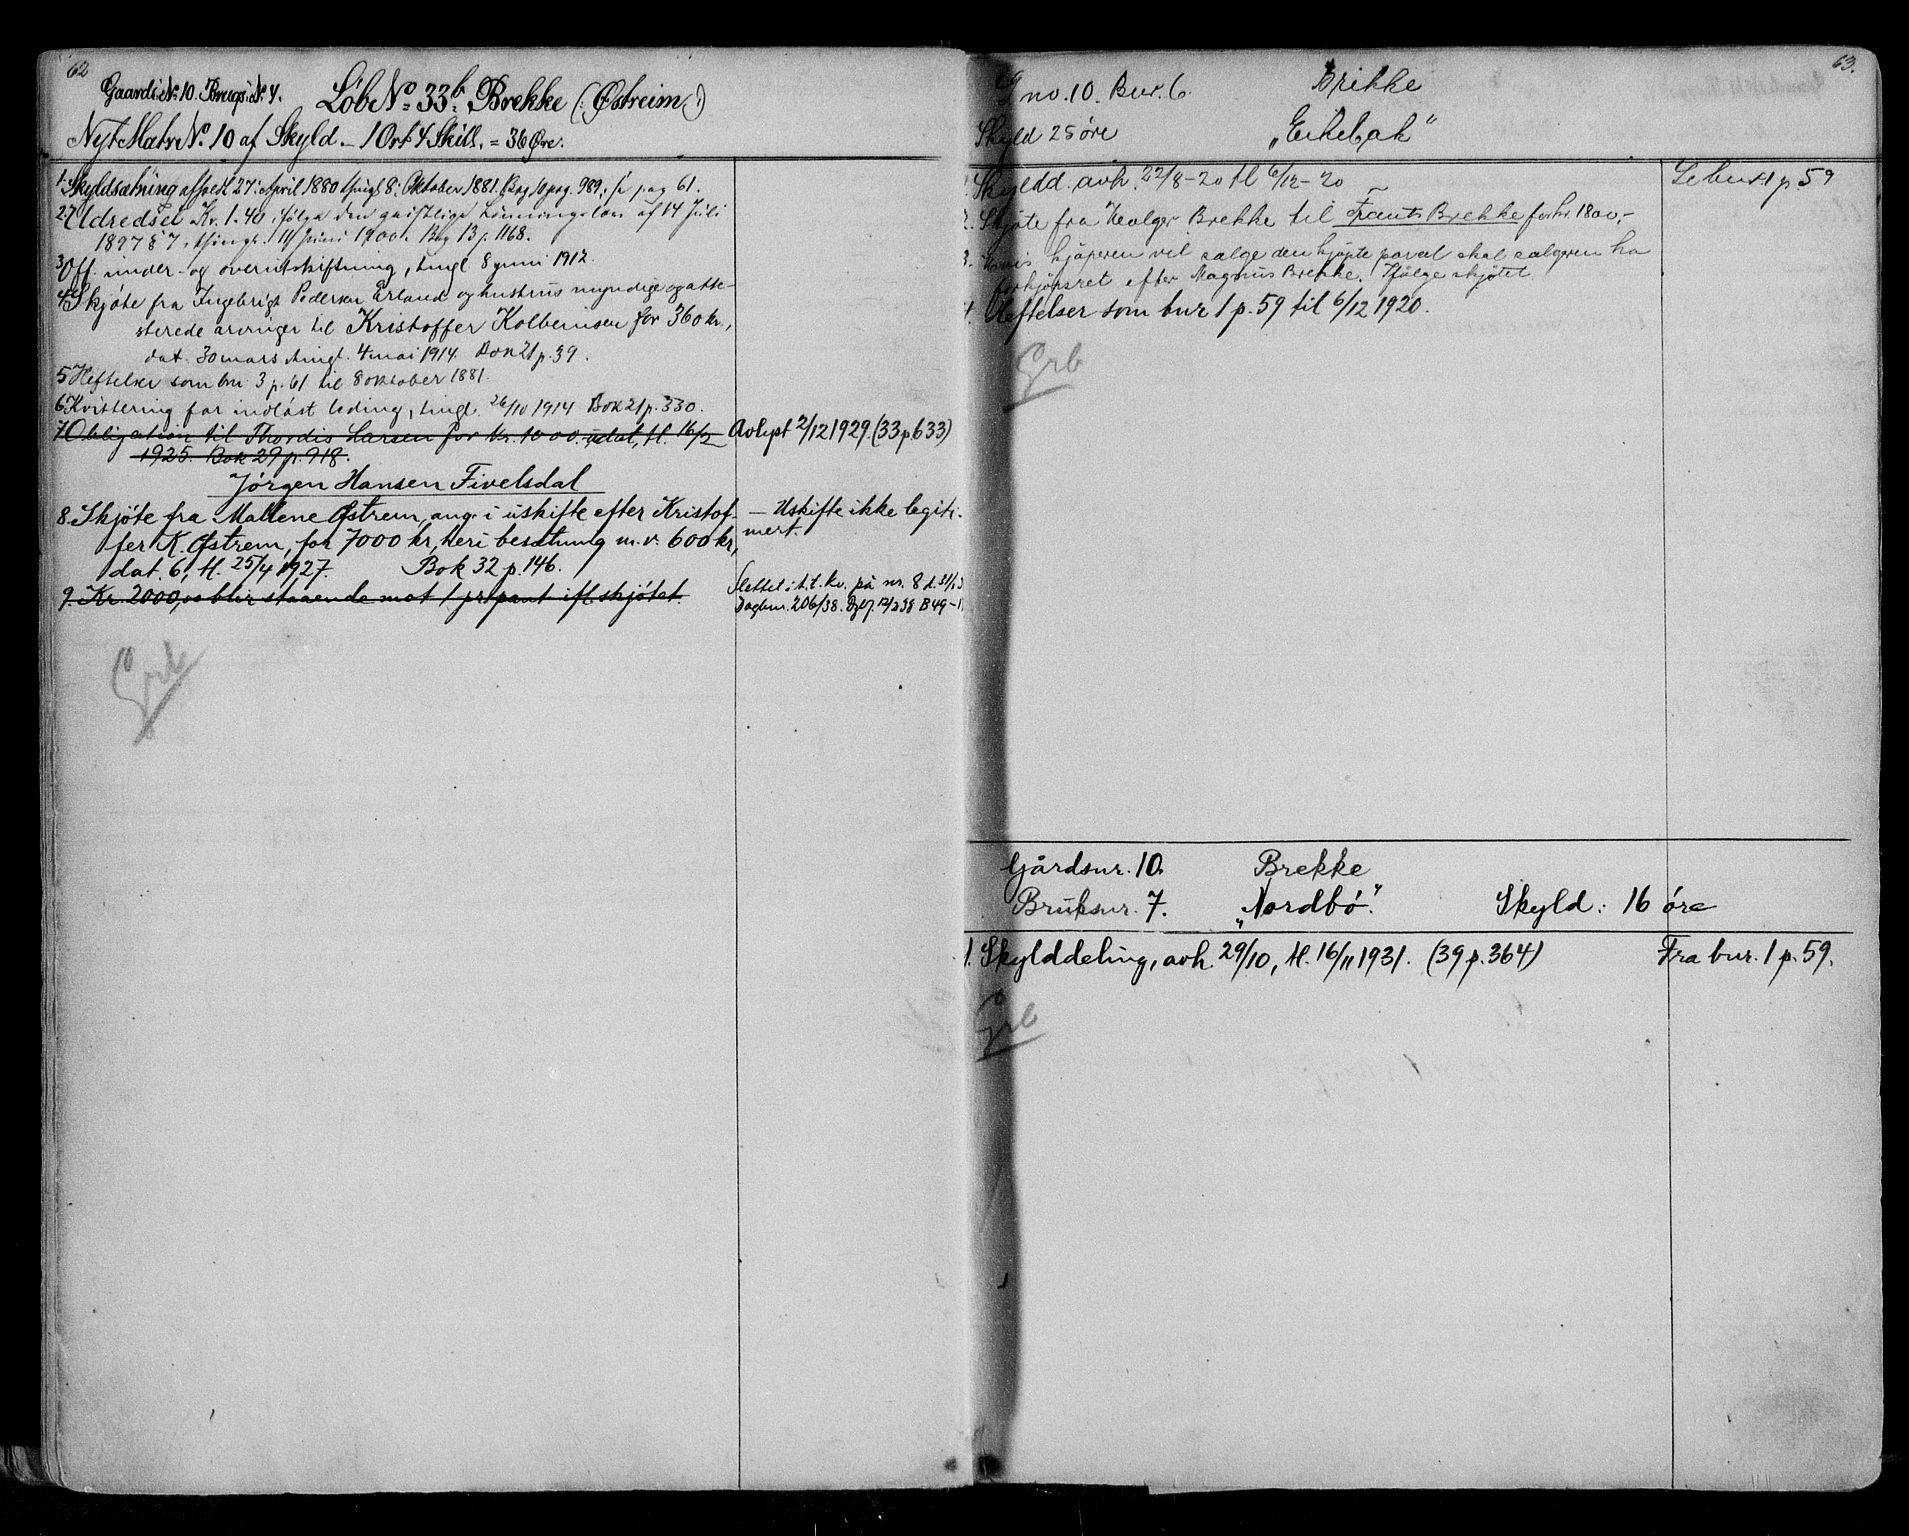 62
Gaards N° 10. Brugs N° 4. Løbe N° 33b. Brekke (: Østreim :)
Nyt Matr N° 10 af Skyld - 1 Ort 4 Skill. = 36 Øre.
1. Skyldsætning afholdt 27. April 1880 thingl. 8. Oktober 1881. Bog 10 pag. 989, pag 61.
2. Udredsel Kr. 1.40 ifølge den geistlige Lønningslov af 14 Juli
1897 § 7, thingl. 11 Juni 1900. Bog 13 p. 1168.
3. Off. under- og overutskiftning, tingl 8 juni 1912.
4. Skjøte fra Ingebrigt Pedersen Erland og hustrus myndige og atte-
sterede arvinger til Kristoffer Kolbeinsen for 360 kr.,
dat. 30 mars tingl. 4 mai 1914. Bok 21 p. 39.
5. Heftelser som bnr 3 p. 61 til 8 oktober 1881.
6. Kvittering for indløst leding, tingl. 26/10 1914 Bok 21 p. 330.
7. Obligation til Thordis Larsen for kr. 1000. udat, tl. 16/2 Avlyst 2/12 1929. (33 p 633)
1925. Bok 29 p. 918.
Jørgen Hansen Fivelsdal
8. Skjøte fra Mallene Østrem, ang. i uskifte efter Kristof- — Uskifte ikke legiti-
fer K. Østrem, for 7000 kr, heri besætning m.v. 600 kr, mert.
dat. 6, tl. 25/4 1927. Bok 32 p. 146.
9. Kr. 2000,00 blir staaende mot 1 pr. pant ifl. skjøtet. Slettet i.t.t. kv. på nr. 8 d.
Dagbnr. 206/38. 12/2 38 B 49-
Grb
63.
Gno. 10. Bnr. 6. Brekke
Skyld 25 øre „Eikebak“
1. Skyldd. avh. 27/8-20 tl 6/12-20 Se bnr 1 p 59
2. Skjøte fra Holger Brekke til Frants Brekke for kr 1800,-
3. Hvis kjøperen vil sælge den kjøpte parcel skal sælgeren ha
forkjøpsret efter Magnus Brekke. Ifølge skjøtet
4. Heftelser som bnr 1 p. 59 til 6/12 1920.
Grb
Gårdsnr. 10. Brekke
Bruksnr. 7. „Nordbø.“ Skyld: 16 øre
1. Skylddeling, avh. 29/10, tl. 16/11 1931. (39 p. 364) Fra bnr. 1 p. 59.
Grb